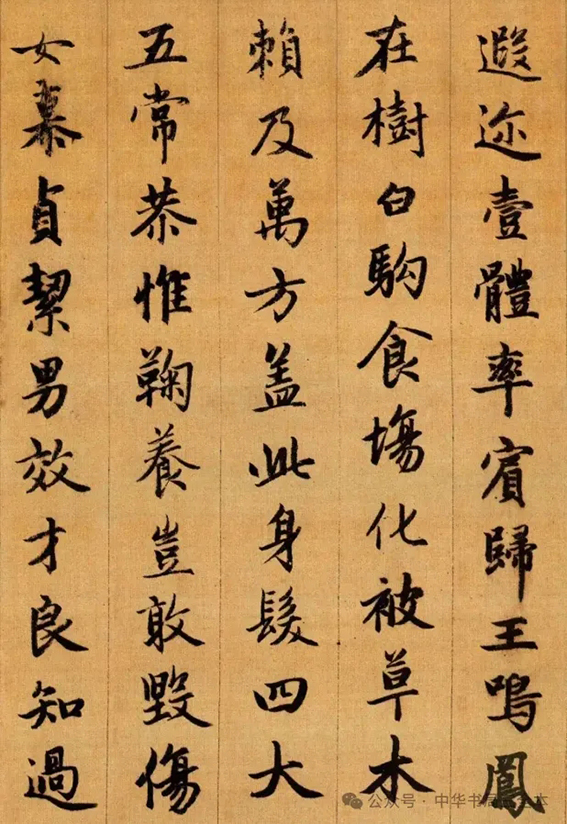 遐迩壹體率賓歸王鳴鳳
在樹白駒食場化被草木
賴及萬方盖此身髮四大
五常恭惟鞠養豈敢毀傷
女慕貞絜男效才良知過
公众号·中华书局